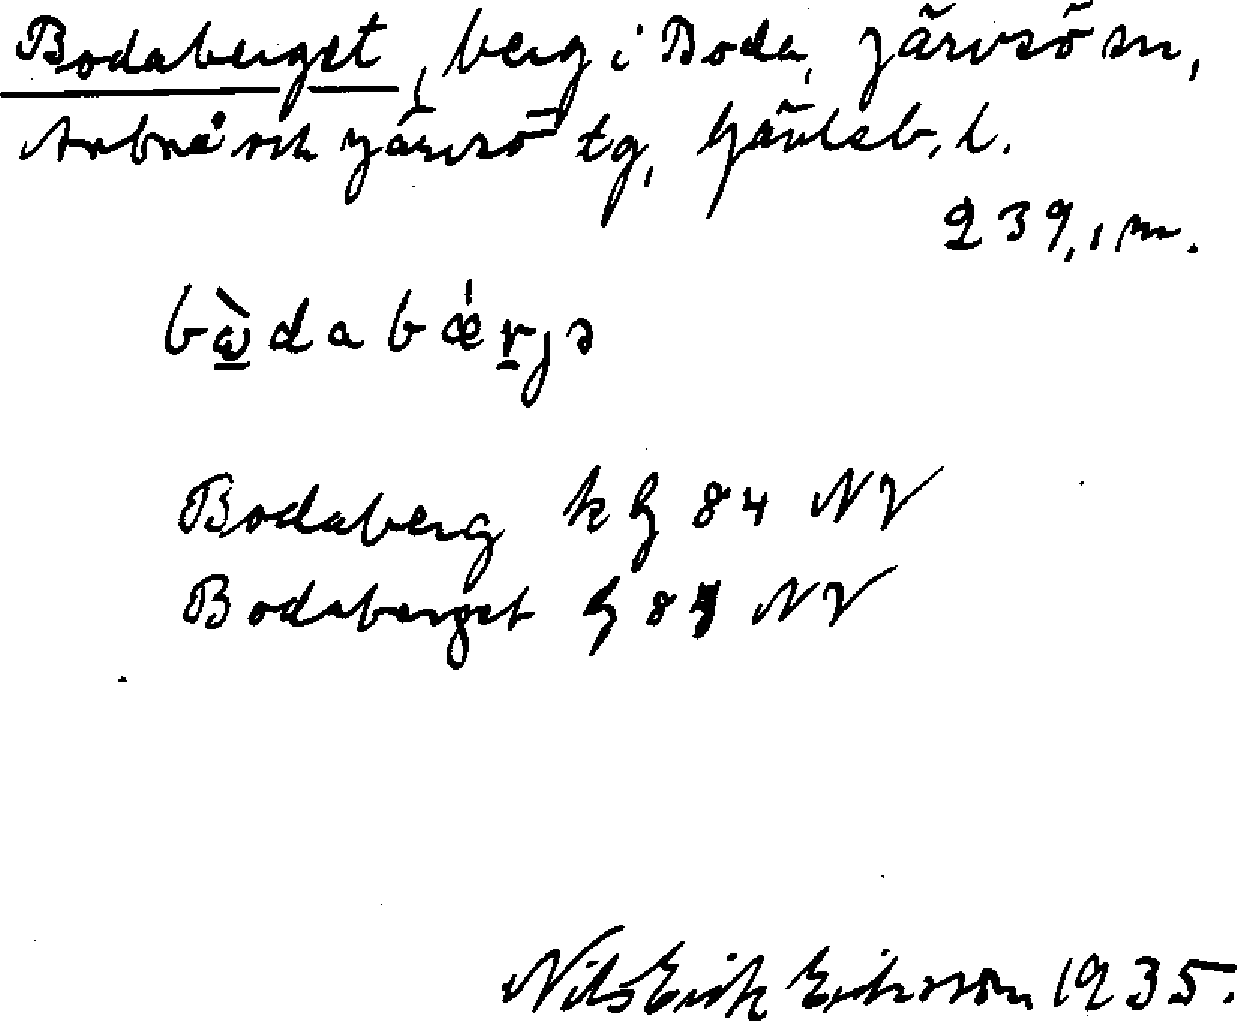 Bodaberget, berg i Boda, Järvsö sn,
Arbrå och Järvsö tg, Gävleb. l.
239,1 m.
bὼ̱dabǽṟjə
Bodaberg k G 84 NV
Bodaberget G 84 NV
Nils Erik Eriksson 1935.